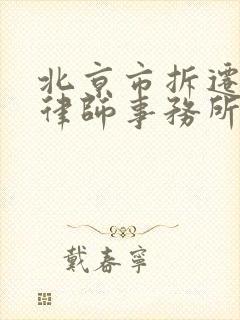 北京市拆遷
律師事務所
戴春寧